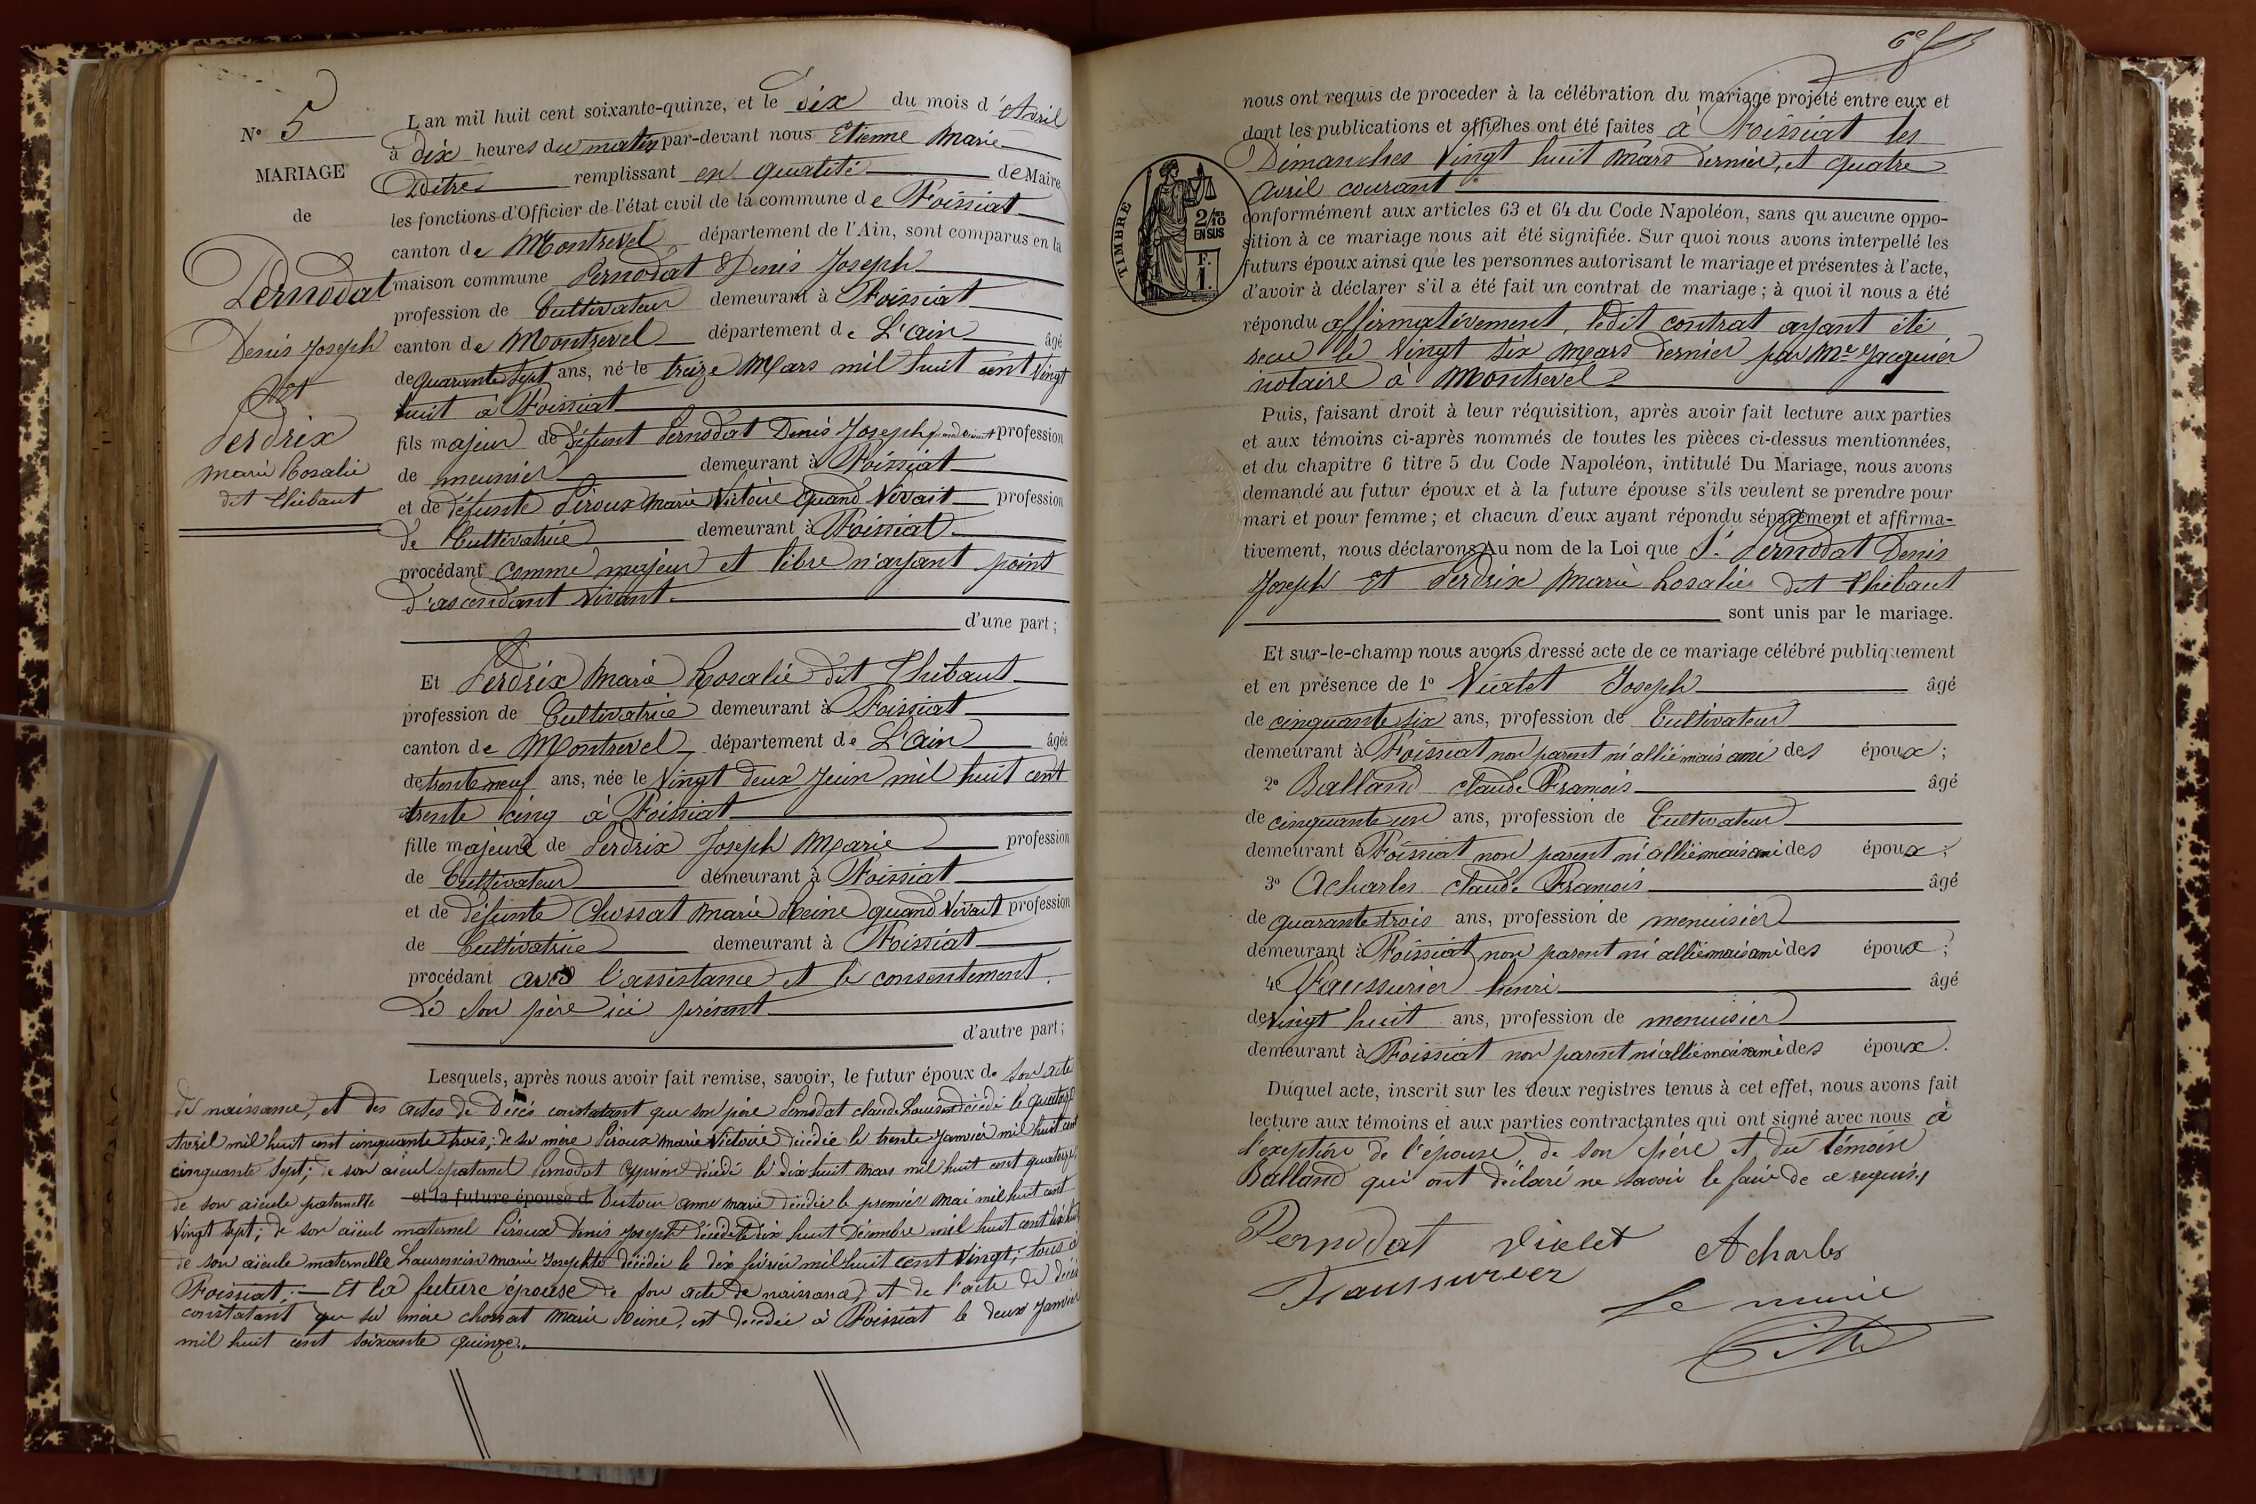 N° 5
MARIAGE
de
Pernodat
Denis Joseph
Et
Perdrix
Marie Rosalie
dit Thibaut
L'an mil huit cent soixante-quinze, et le dix du mois d'Avril
à dix heures du matin par-devant nous Etienne Marie
remplissant en qualité de Maire
les fonctions d'Officier de l'état civil de la commune de Foissiat
canton de Montrevel département de l'Ain, sont comparus en la
maison commune Pernodat Denis Joseph
profession de Cultivateur demeurant à Foissiat
canton de Montrevel département de L'ain âgé
de quarante sept ans, né le treize Mars mil huit cent vingt
huit à Foissiat
fils majeur de défunt Pernodat Denis Joseph quand vivait profession
de meunier demeurant à Foissiat
et de défunte Piroux Marie Victoire quand vivait profession
de Cultivatrice demeurant à Foissiat
procédant comme majeur et libre n'ayant point
d'ascendant vivant.
d'une part;
Et Perdrix Marie Rosalie dit Thibaut
profession de Cultivatrice demeurant à Foissiat
canton de Montrevel département de L'ain âgée
de trente neuf ans, née le vingt deux Juin mil huit cent
trente cinq à Foissiat
fille majeure de Perdrix Joseph Marie profession
de Cultivateur demeurant à Foissiat
et de défunte Chossat Marie Reine quand vivait profession
de Cultivatrice demeurant à Foissiat
procédant avec l'assistance et le consentement
de son père ici présent
d'autre part;
Lesquels, après nous avoir fait remise, savoir, le futur époux de son acte
de naissance, et des actes de décès constatant que son père Pernodat Claude Louis est décédé le quatorze
Avril mil huit cent cinquante trois; de sa mère Piroux Marie Victoire décédée le trente Janvier mil huit cent
cinquante sept; de son aïeul paternel Pernodat Cyprien décédé le dix huit Mars mil huit cent quatorze;
de son aïeule paternelle et la future épouse d Dutour anne marie décédée le premier Mai mil huit cent
vingt sept; de son aïeul maternel Piroux Denis Joseph décédé le dix huit Décembre mil huit cent dix huit
de son aïeule maternelle Laurencin marie Josephte décédée le dix février mil huit cent vingt; tous à
Foissiat; — Et la future épouse de son acte de naissance, et de l'acte de décès
constatant que sa mère chossat Marie Reine, est décédée à Foissiat le deux Janvier
mil huit cent soixante quinze.
nous ont requis de proceder à la célébration du mariage projeté entre eux et
dont les publications et affiches ont été faites à Foissiat les
Dimanches vingt huit Mars dernier, et quatre
avril courant.
TIMBRE
2/10
EN SUS
F.
1.
conformément aux articles 63 et 64 du Code Napoléon, sans qu'aucune oppo-
sition à ce mariage nous ait été signifiée. Sur quoi nous avons interpellé les
futurs époux ainsi que les personnes autorisant le mariage et présentes à l'acte,
d'avoir à déclarer s'il a été fait un contrat de mariage; à quoi il nous a été
répondu affirmativement, ledit contrat ayant été
reçu le vingt six mars dernier par Me Jacquier
notaire à Montrevel
Puis, faisant droit à leur réquisition, après avoir fait lecture aux parties
et aux témoins ci-après nommés de toutes les pièces ci-dessus mentionnées,
et du chapitre 6 titre 5 du Code Napoléon, intitulé Du Mariage, nous avons
demandé au futur époux et à la future épouse s'ils veulent se prendre pour
mari et pour femme; et chacun d'eux ayant répondu séparément et affirma-
tivement, nous déclarons Au nom de la Loi que Sr. Pernodat Denis
Joseph Et Perdrix Marie Rosalie dit Thibaut
sont unis par le mariage.
Et sur-le-champ nous avons dressé acte de ce mariage célébré publiquement
et en présence de 1° Violet Joseph âgé
de cinquante six ans, profession de Cultivateur
demeurant à Foissiat non parent ni allié mais ami des époux;
2° Balland claude François âgé
de cinquante un ans, profession de Cultivateur
demeurant à Foissiat non parent ni allié mais ami des époux;
3° Acharles claude François âgé
de quarante trois ans, profession de menuisier
demeurant à Foissiat non parent ni allié mais ami des époux;
4° Faussurier henri âgé
de vingt huit ans, profession de menuisier
demeurant à Foissiat non parent ni allié mais ami des époux.
Duquel acte, inscrit sur les deux registres tenus à cet effet, nous avons fait
lecture aux témoins et aux parties contractantes qui ont signé avec nous à
l'exeption de l'épouse, de son père et du témoin
Balland qui ont déclaré ne savoir le faire de ce requis.
Pernodat Violet Acharles
Faussurier
Le maire